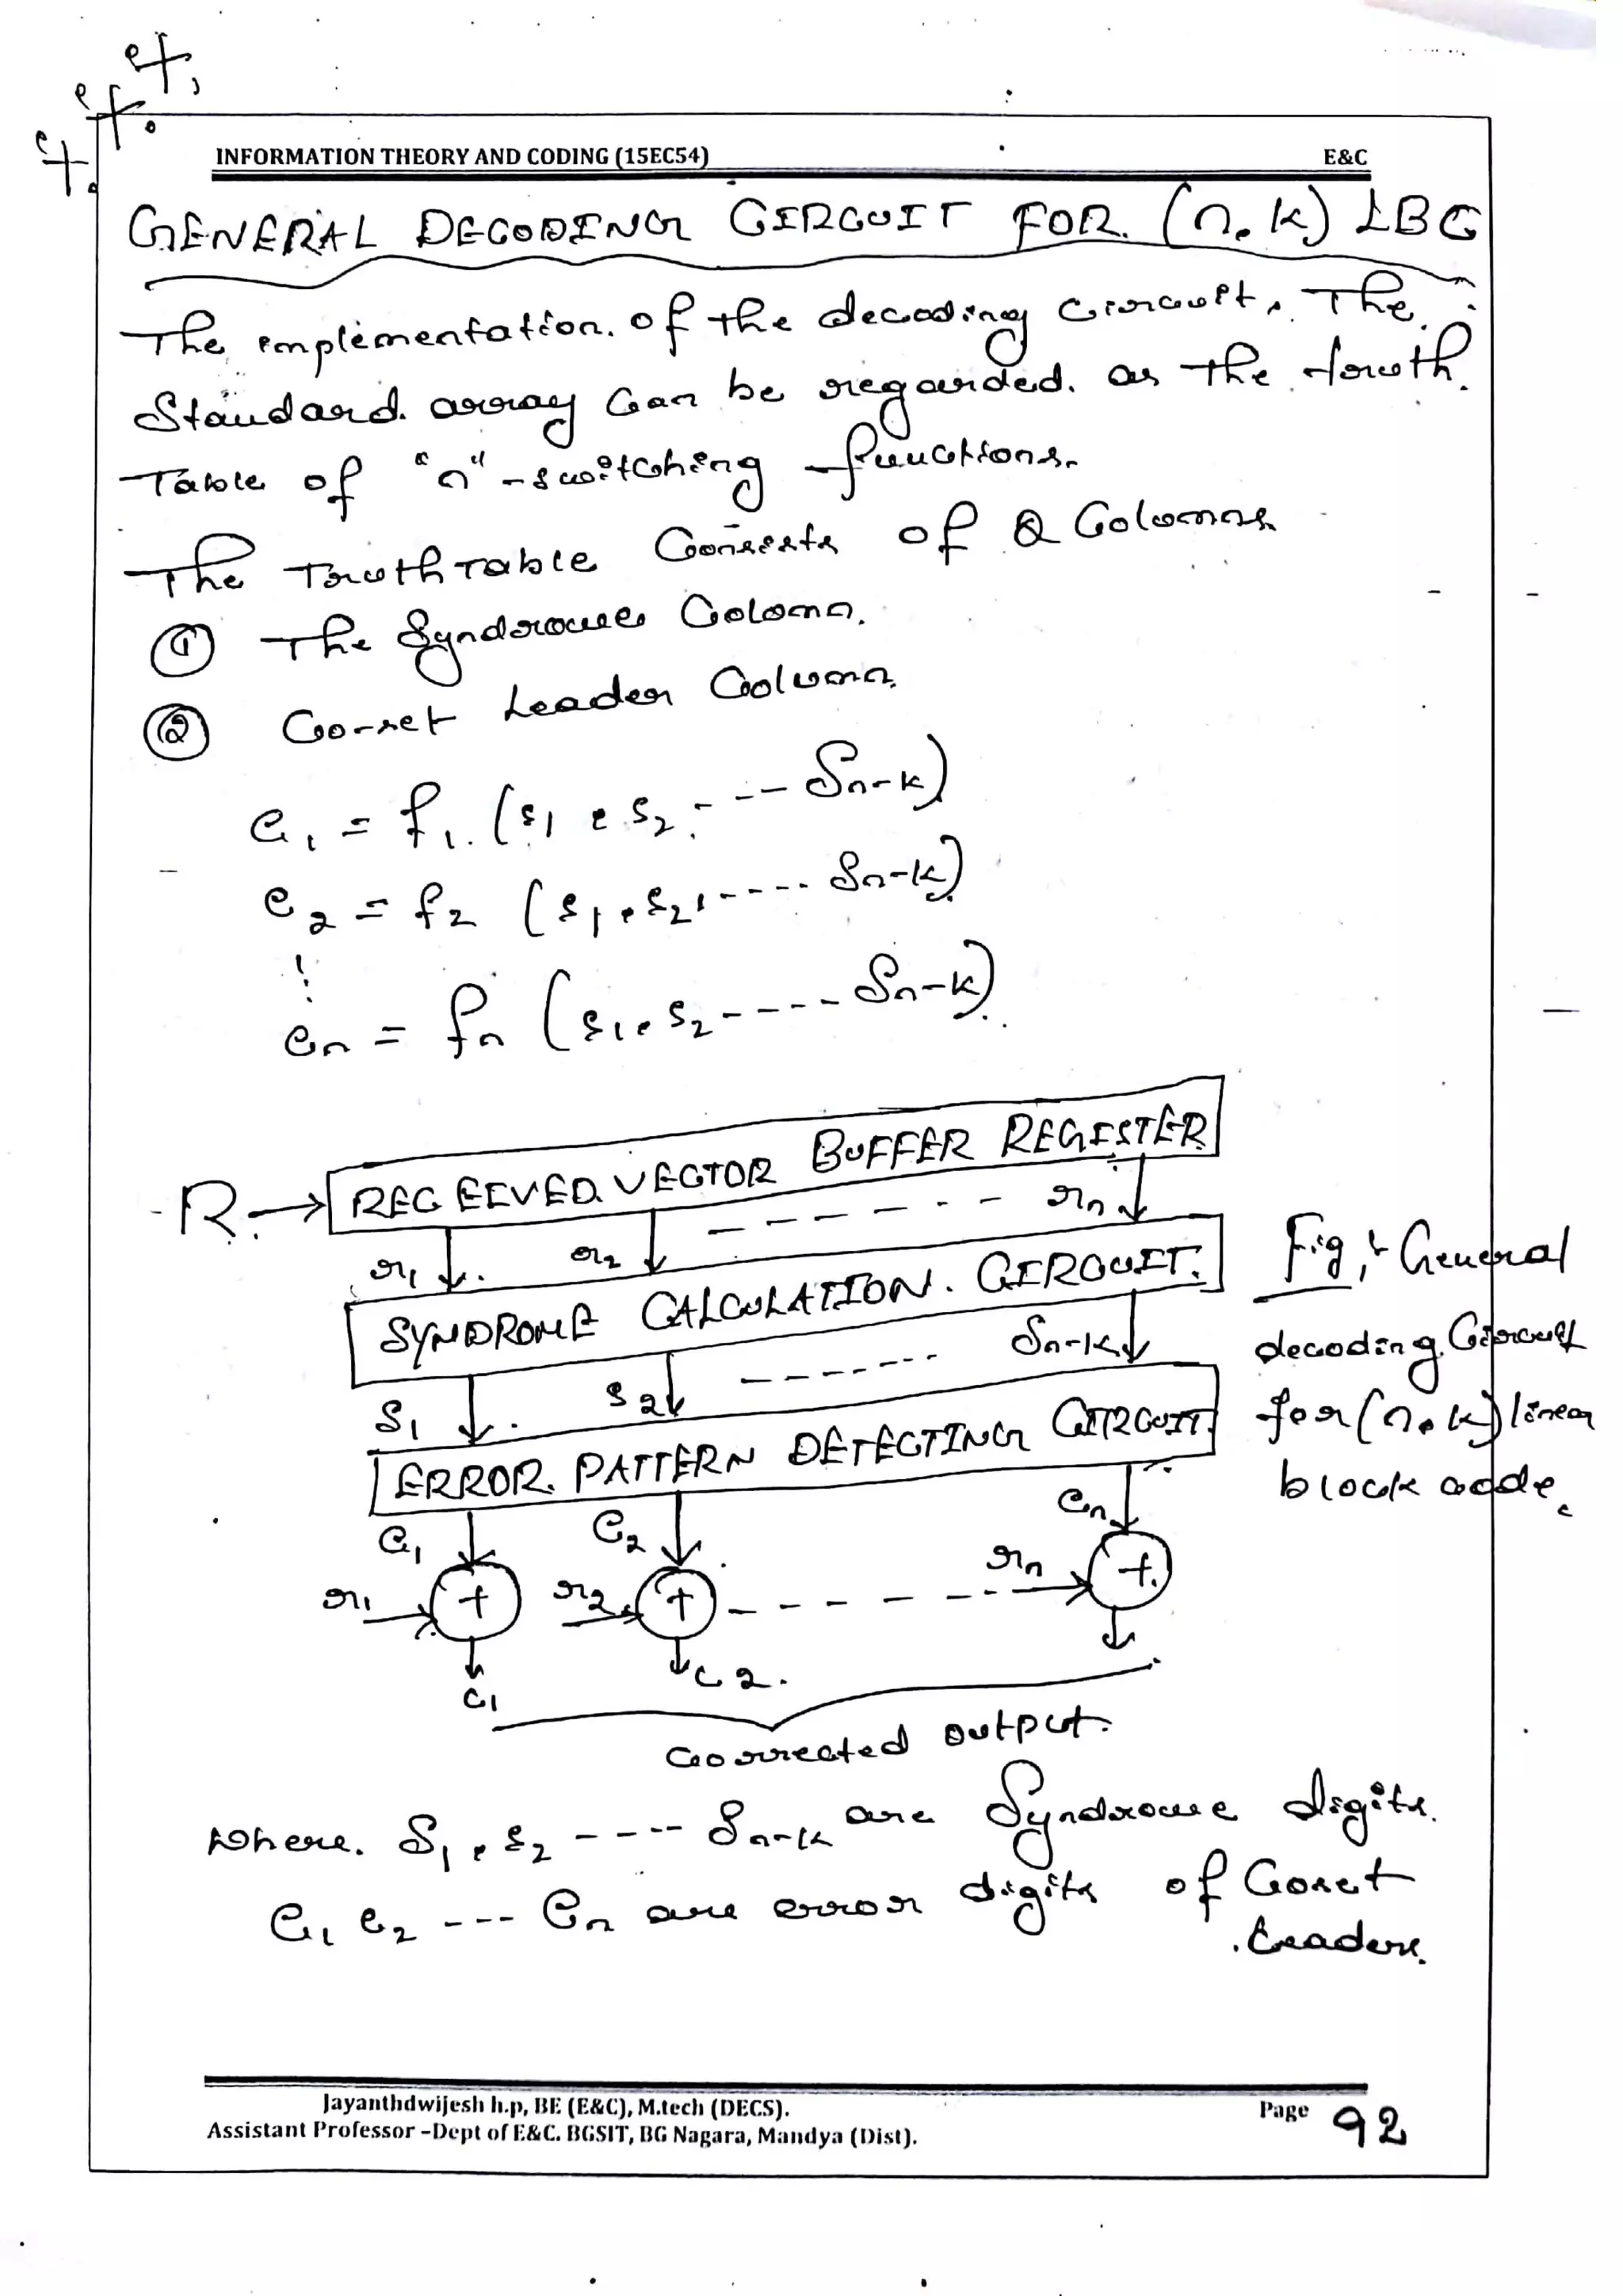 INFORMATION THEORY AND CODING (15EC54) E&C
GENERAL DECODING CIRCUIT FOR (n, k) LBC
The implementation of the decoding circuit, The
Standard array can be regarded as the truth
Table of "n" - switching functions.
The Truth Table Consists of 2 Columns
① The Syndrome Column.
② Co-set Leader Column.
e1 = f1 (s1, s2, --- Sn-k)
e2 = f2 (s1, s2, ---- Sn-k)
⋮
en = fn (s1, s2 ---- Sn-k)
R → RECEIVED VECTOR BUFFER REGISTER
r1 r2 ------ rn
SYNDROME CALCULATION CIRCUIT.
S1 S2 ------ Sn-k
ERROR PATTERN DETECTING CIRCUIT
e1 e2 en
r1 + r2 + ------ rn +
c1 c2.
Corrected output.
Fig: General
decoding Circuit
for (n, k) linear
block code.
where S1, S2 ---- Sn-k are Syndrome digits.
e1 e2 --- en are error digits of Coset
Leaders.
Jayanthdwijesh h.p, BE (E&C), M.tech (DECS).
Assistant Professor –Dept of E&C. BGSIT, BG Nagara, Mandya (Dist).
Page 92